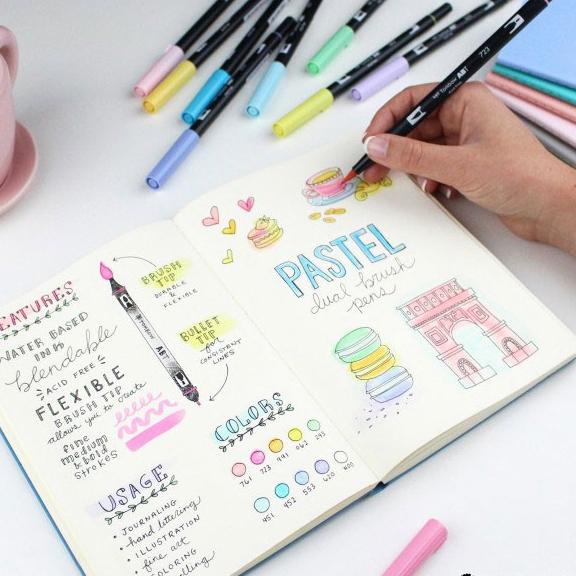 FEATURES
WATER BASED
INK
blendable
ACID FREE
FLEXIBLE
BRUSH TIP
allows you to create
fine
medium
& bold
strokes
USAGE
• JOURNALING
• hand lettering
• ILLUSTRATION
• fine art
COLORING
BRUSH
TIP
DURABLE
&
FLEXIBLE
BULLET
TIP
for
CONSISTENT
LINES
Tombow
ABT
COLORS
761 723 991 062 243
451 452 553 620 N00
PASTEL
dual brush
pens
Tombow ABT 723